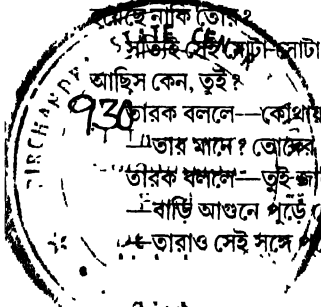 হয়েছে নাকি তোর?
সত্যিই সেই মোটা-সোটা
আছিস কেন, তুই?
তারক বললে—কোথায়
—তার মানে? তোদের
তারক বললে—তুই জা
—বাড়ি আগুনে পুড়ে
—তারাও সেই সঙ্গে
930
BIRCHANDR
STATE CEN